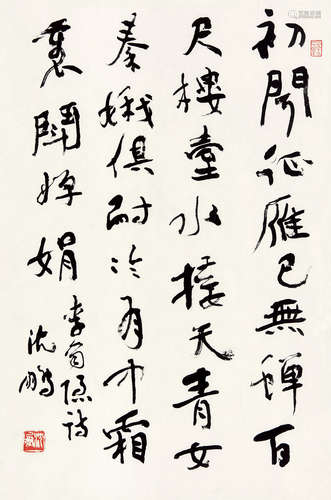 初聞征雁已無蟬百
尺樓臺水接天青女
素娥俱耐冷月中霜
裏鬥嬋娟
李商隱詩
沈鵬